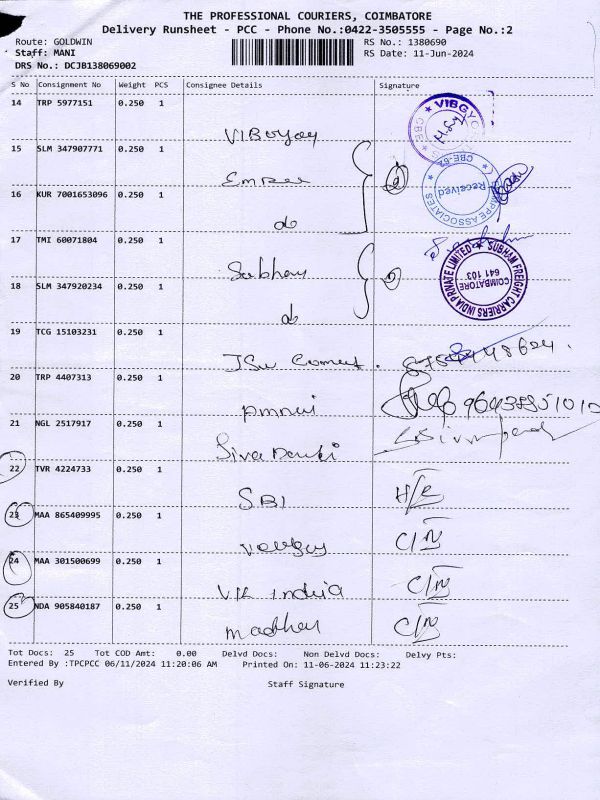 THE PROFESSIONAL COURIERS, COIMBATORE
Delivery Runsheet - PCC - Phone No.:0422-3505555 - Page No.:2
Route: GOLDWIN RS No.: 1380690
Staff: MANI RS Date: 11-Jun-2024
DRS No.: DCJB138069002
S No Consignment No Weight PCS Consignee Details Signature
14 TRP 5977151 0.250 1
VIBGYOR
15 SLM 347907771 0.250 1
16 KUR 7001653096 0.250 1
do
Received
CBE-62
ASSOCIATES
17 TMI 60071804 0.250 1
Subham
SUBHAM FREIGHT CARRIERS INDIA PRIVATE LIMITED
COIMBATORE
641 103.
18 SLM 347920234 0.250 1
do
19 TCG 15103231 0.250 1
JSW Cement.
20 TRP 4407313 0.250 1
21 NGL 2517917 0.250 1
22 TVR 4224733 0.250 1
SBI
23 MAA 865409995 0.250 1
C/N
24 MAA 301500699 0.250 1
India C/N
25 NDA 905840187 0.250 1
Madhav C/N
Tot Docs: 25 Tot COD Amt: 0.00 Delvd Docs: Non Delvd Docs: Delvy Pts:
Entered By :TPCPCC 06/11/2024 11:20:06 AM Printed On: 11-06-2024 11:23:22
Verified By Staff Signature